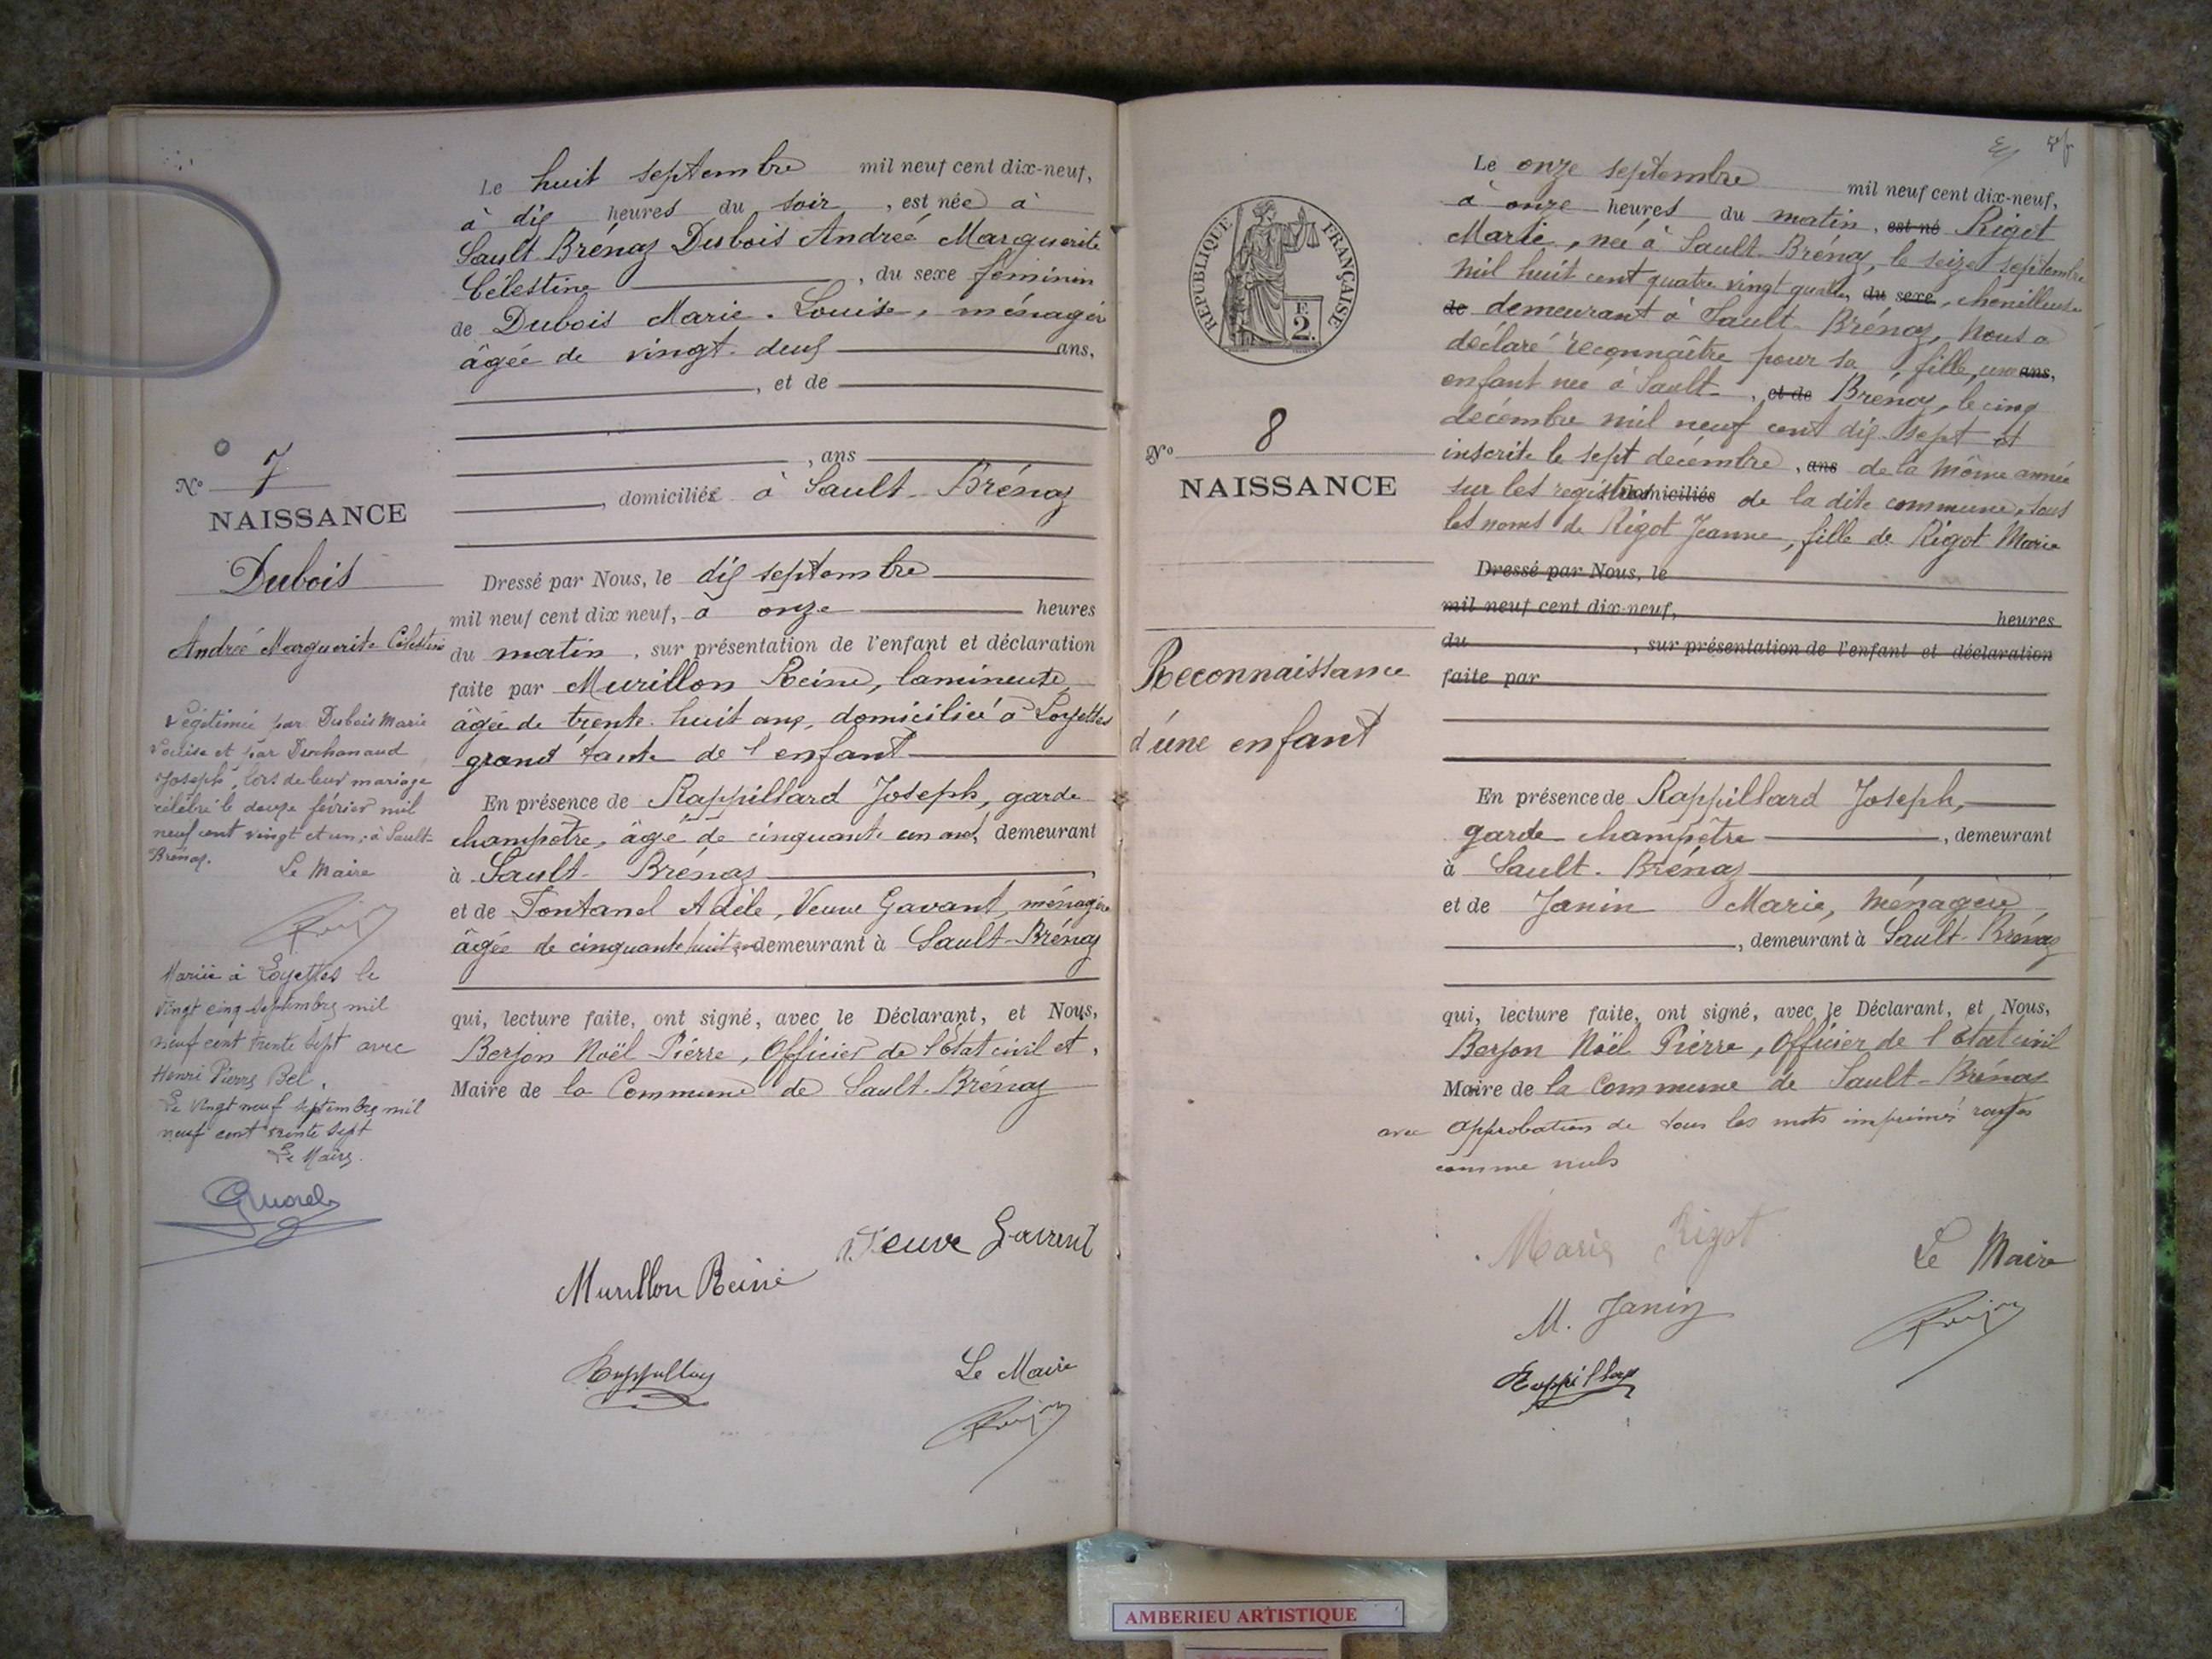 Le huit septembre mil neuf cent dix-neuf,
à dix heures du soir, est née à
Sault-Brénaz Dubois Andreé Marguerite
Célestine, du sexe féminin
de Dubois Marie-Louise, ménagère
âgée de vingt-deux ans,
, et de
, ans
, domiciliée à Sault-Brénaz
N° 7
NAISSANCE
Dubois
Andreé Marguerite Célestine
Légitimée par Dubois Marie
Louise et par Duchanaud
Joseph, lors de leur mariage
célébré le douze février mil
neuf cent vingt et un, à Sault-
Brénaz.
Le Maire
Mariée à Loyettes le
vingt cinq septembre mil
neuf cent trente sept avec
Henri Pierre Bel.
Le vingt neuf septembre mil
neuf cent trente sept
Le Maire.
Dressé par Nous, le dix septembre
mil neuf cent dix neuf, à onze heures
du matin, sur présentation de l'enfant et déclaration
faite par Murillon Reine, lamineuse,
âgée de trente-huit ans, domiciliée à Loyettes
grand'tante de l'enfant
En présence de Rappillard Joseph, garde
champêtre, âgé de cinquante un ans, demeurant
à Sault-Brénaz
et de Fontanel Adèle, Veuve Gavant, ménagère
âgée de cinquante huit ans demeurant à Sault-Brénaz
qui, lecture faite, ont signé, avec le Déclarant, et Nous,
Berjon Noël Pierre, Officier de l'Etat civil et,
Maire de la Commune de Sault-Brénaz
Veuve Gavant
Murillon Reine
Rappillard
Le Maire
RÉPUBLIQUE FRANÇAISE
F.
2.
N° 8
NAISSANCE
Reconnaissance
d'une enfant
Le onze septembre mil neuf cent dix-neuf,
à onze heures du matin, est né Rigot
Marie, neé à Sault-Brénaz, le seize septembre
mil huit cent quatre vingt quatre, du sexe, chenilleuse
de demeurant à Sault-Brénaz, Nous a
déclaré reconnaître pour sa fille, une ans,
enfant neé à Sault-, et de Brénaz, le cinq
décembre mil neuf cent dix-sept et
inscrite le sept décembre, ans de la même année
sur les registres domiciliés de la dite commune, sous
les noms de Rigot Jeanne, fille de Rigot Marie
Dressé par Nous, le
mil neuf cent dix-neuf, heures
du, sur présentation de l'enfant et déclaration
faite par
En présence de Rappillard Joseph,
garde champêtre, demeurant
à Sault-Brénaz
et de Janin Marie, ménagère
, demeurant à Sault-Brénaz
qui, lecture faite, ont signé, avec le Déclarant, et Nous,
Berjon Noël Pierre, Officier de l'Etat civil
Maire de la Commune de Sault-Brénaz
avec approbation de tous les mots imprimés rayés
comme nuls
Marie Rigot
Le Maire
M. Janin
Rappillard
AMBERIEU ARTISTIQUE